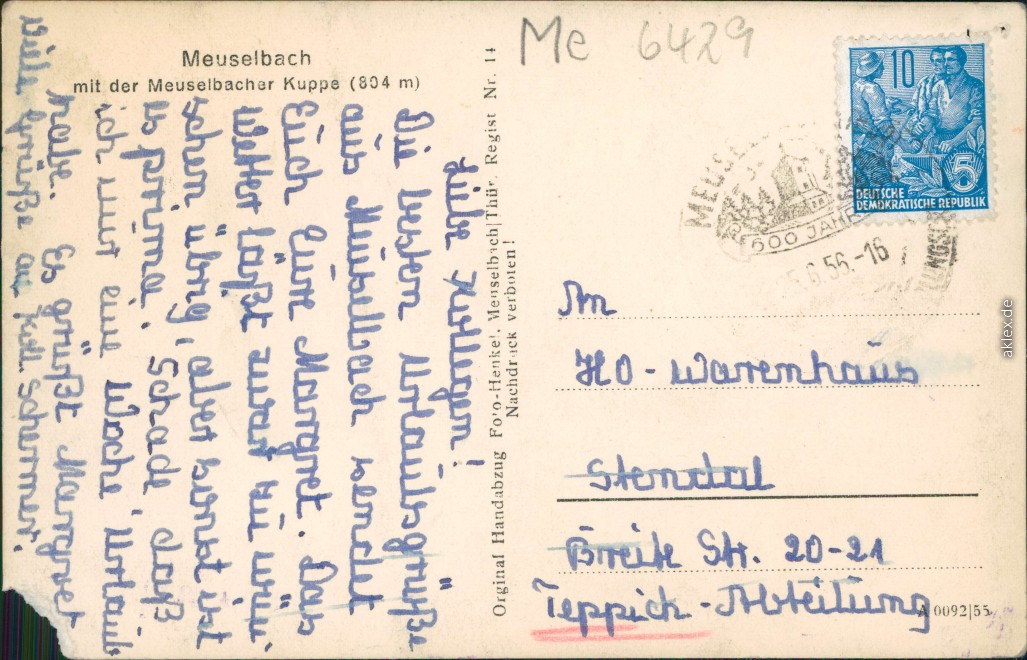 Meuselbach
mit der Meuselbacher Kuppe (804 m)
Liebe Kollegen!
Die besten Urlaubsgrüße
aus Meuselbach sendet
Euch Eure Margret. Das
Wetter läßt zwar zu wün-
schen übrig, aber sonst ist
es prima. Schade, daß
ich nur eine Woche Urlaub
habe. Es grüßt Margret
Viele Grüße an Koll. Schermer.
Orginal Handabzug Foto-Henkel, Meuselbach/Thür. Regist Nr. 14
Nachdruck verboten!
Me 6429
10
5
DEUTSCHE
DEMOKRATISCHE REPUBLIK
600 JAHR
5.6.56.-16
An
HO-Warenhaus
Stendal
Breite Str. 20-21
Teppich-Abteilung
A 0092/55
aklex.de